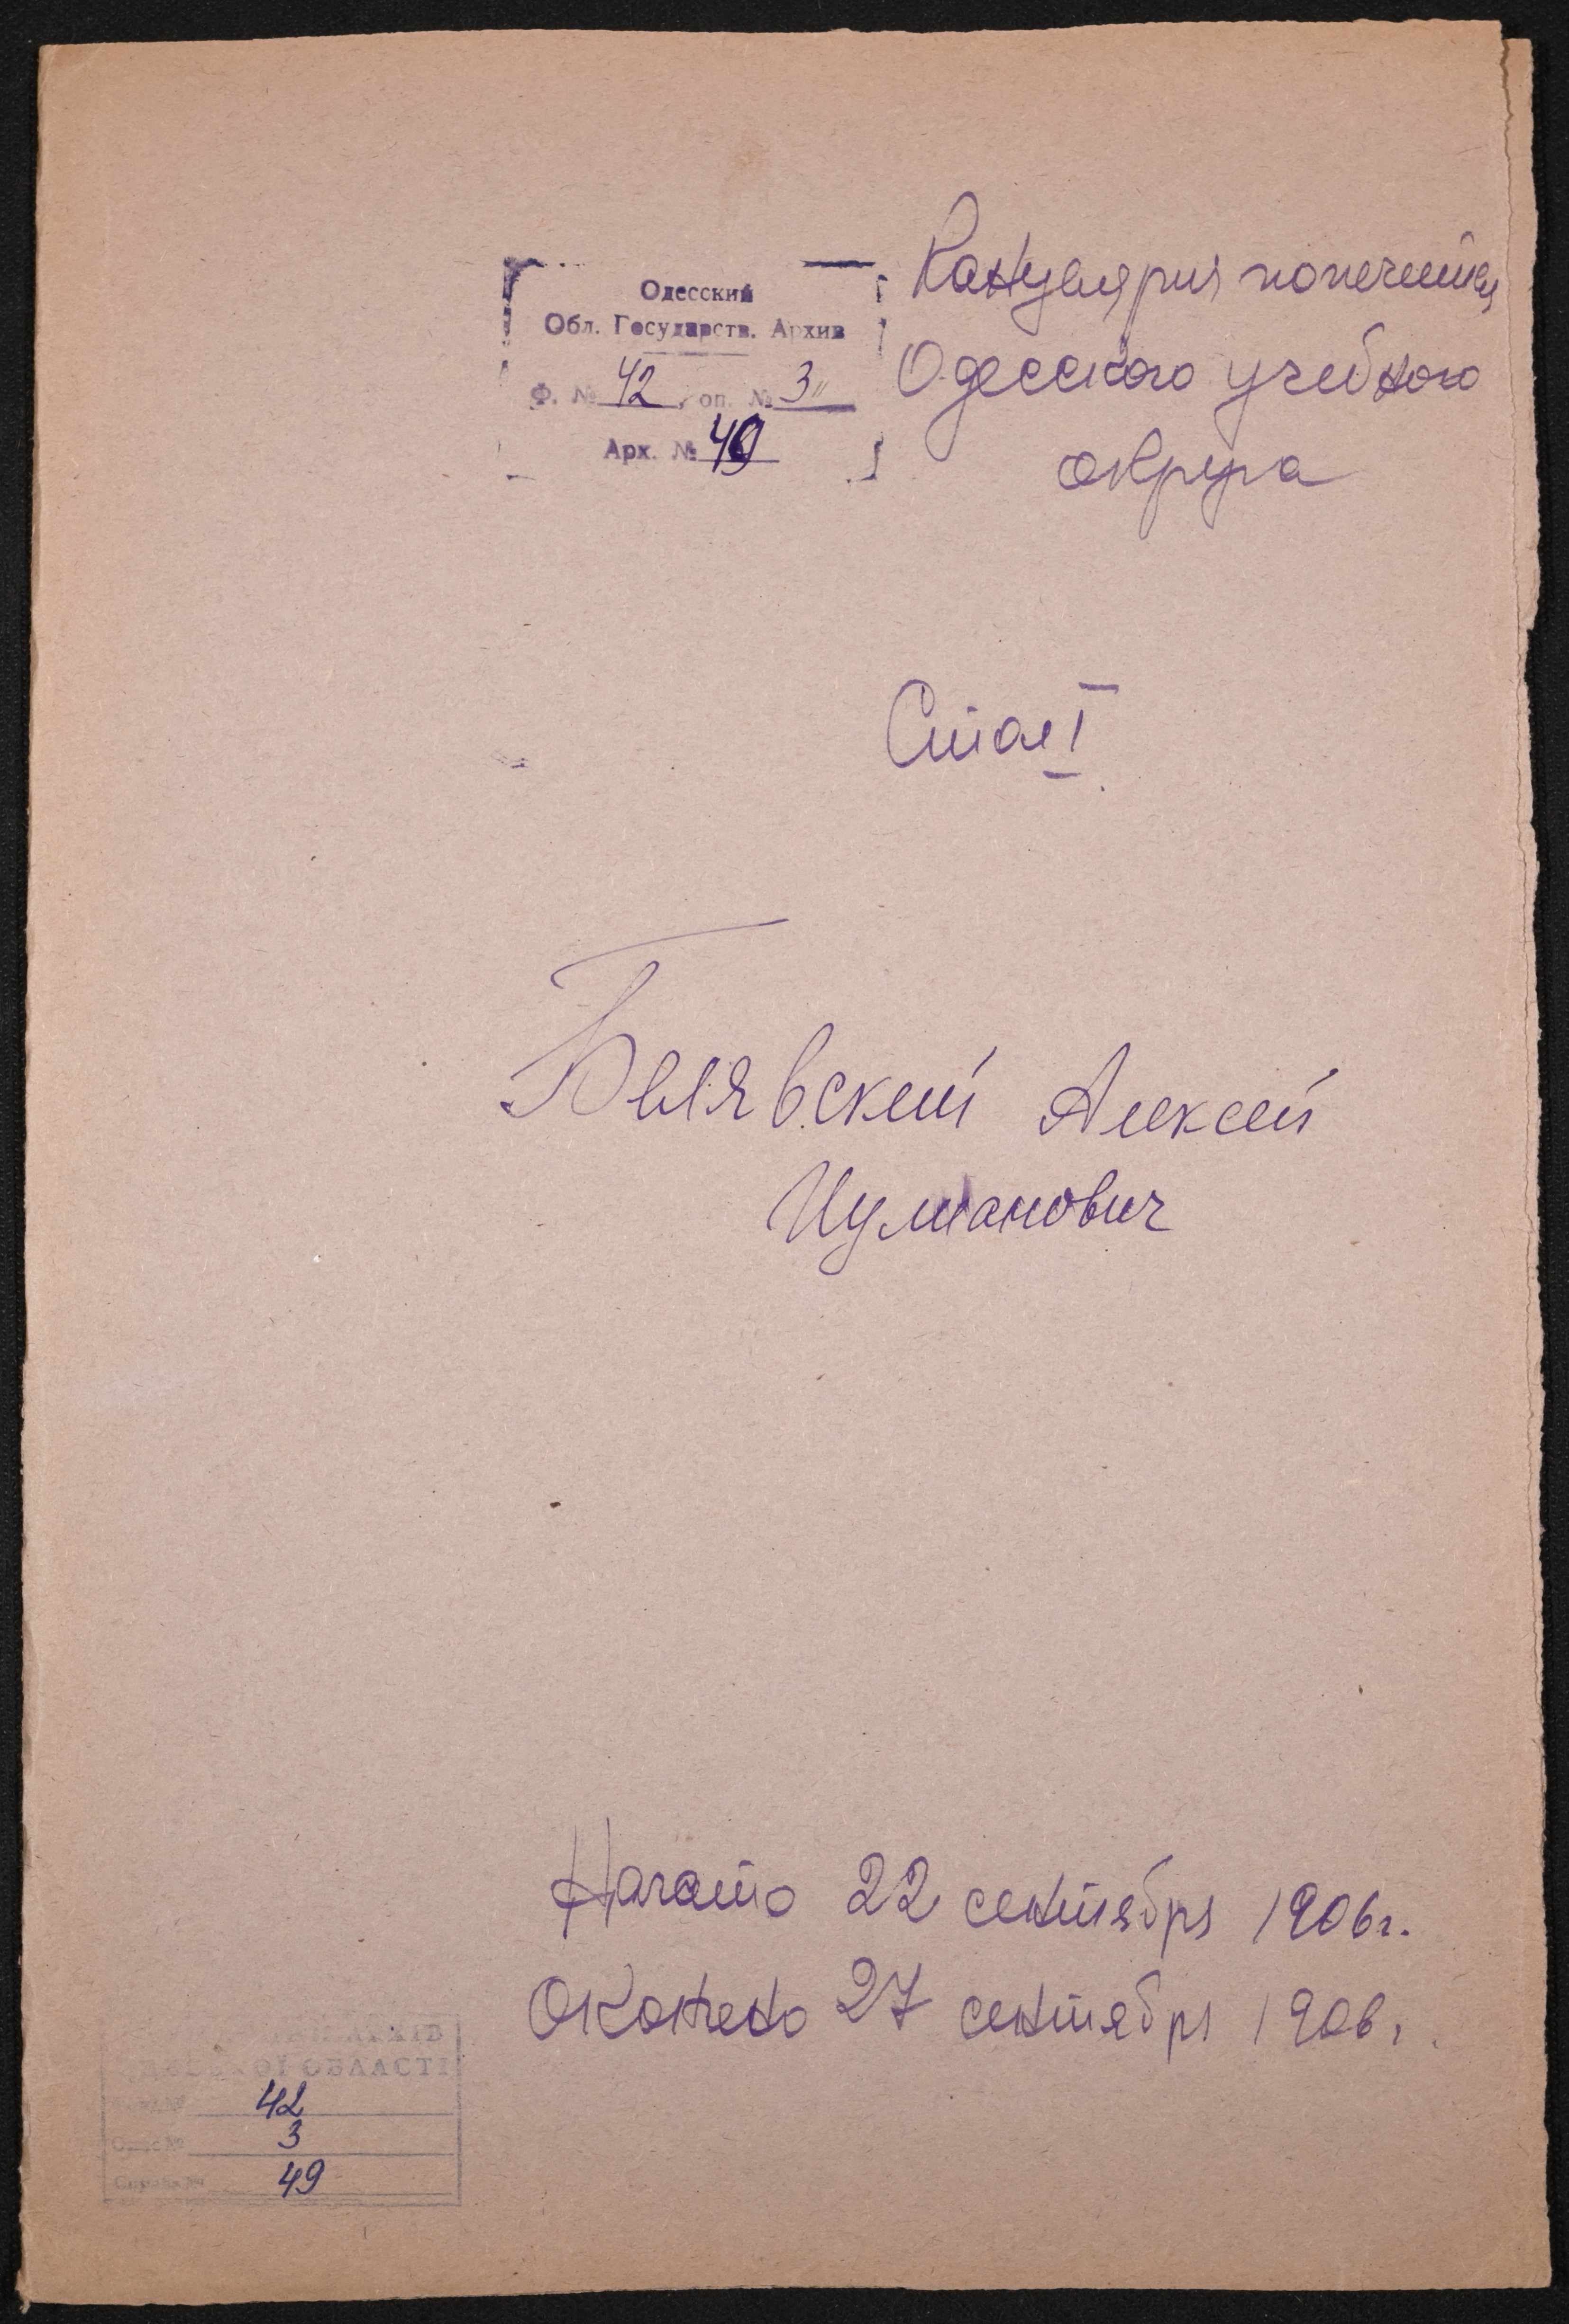 Одесский
Обл. Государств. Архив
Ф. № 42, оп. № 3
Арх. № 49
Канцелярия попечителя
Одесского учебного
округа
Стол I
Белявский Алексей
Шулианович
Начато 22 сентября 1906 г.
Окончено 27 сентября 1906.
ОБЛАСТІ
42
3
49